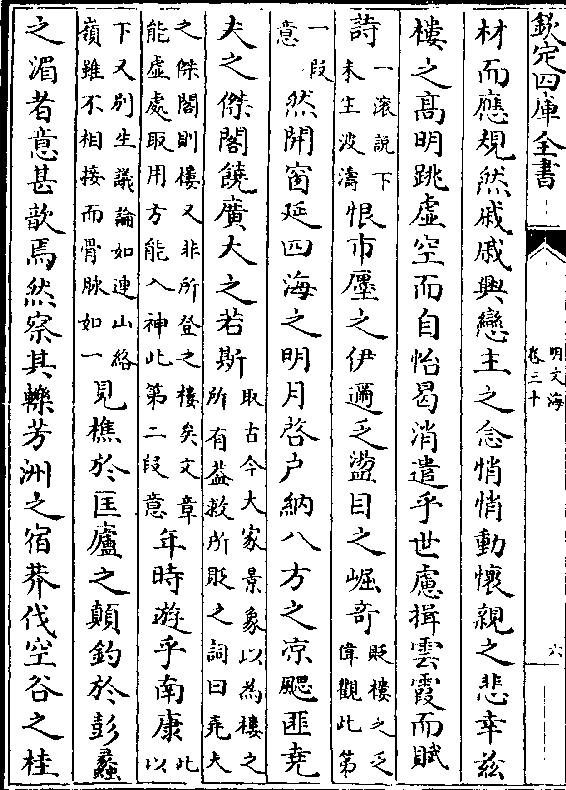 欽定四庫全書
明文海
卷三十
六
材而應規然戚戚興戀主之念悄悄動懷親之悲幸茲
樓之高明跳虛空而自怡曷消遣乎世慮揖雲霞而賦
詩一滚說下未生波濤恨市廛之伊邇乏盪目之崛竒貶樓之乏偉觀此第
一段意然開窗延四海之明月啓户納八方之凉颸匪堯
夫之傑閣饒廣大之若斯取古今大家景象以為樓之所有益救所貶之詞曰堯夫
之傑閣則樓又非所登之樓矣文章能虛處取用方能入神此第二段意年時遊乎南康此以
下又别生議論如連山絡嶺雖不相接而骨脉如一見樵於匡廬之顛釣於彭蠡
之湄者意甚歆焉然察其轢芳洲之宿莽伐空谷之桂